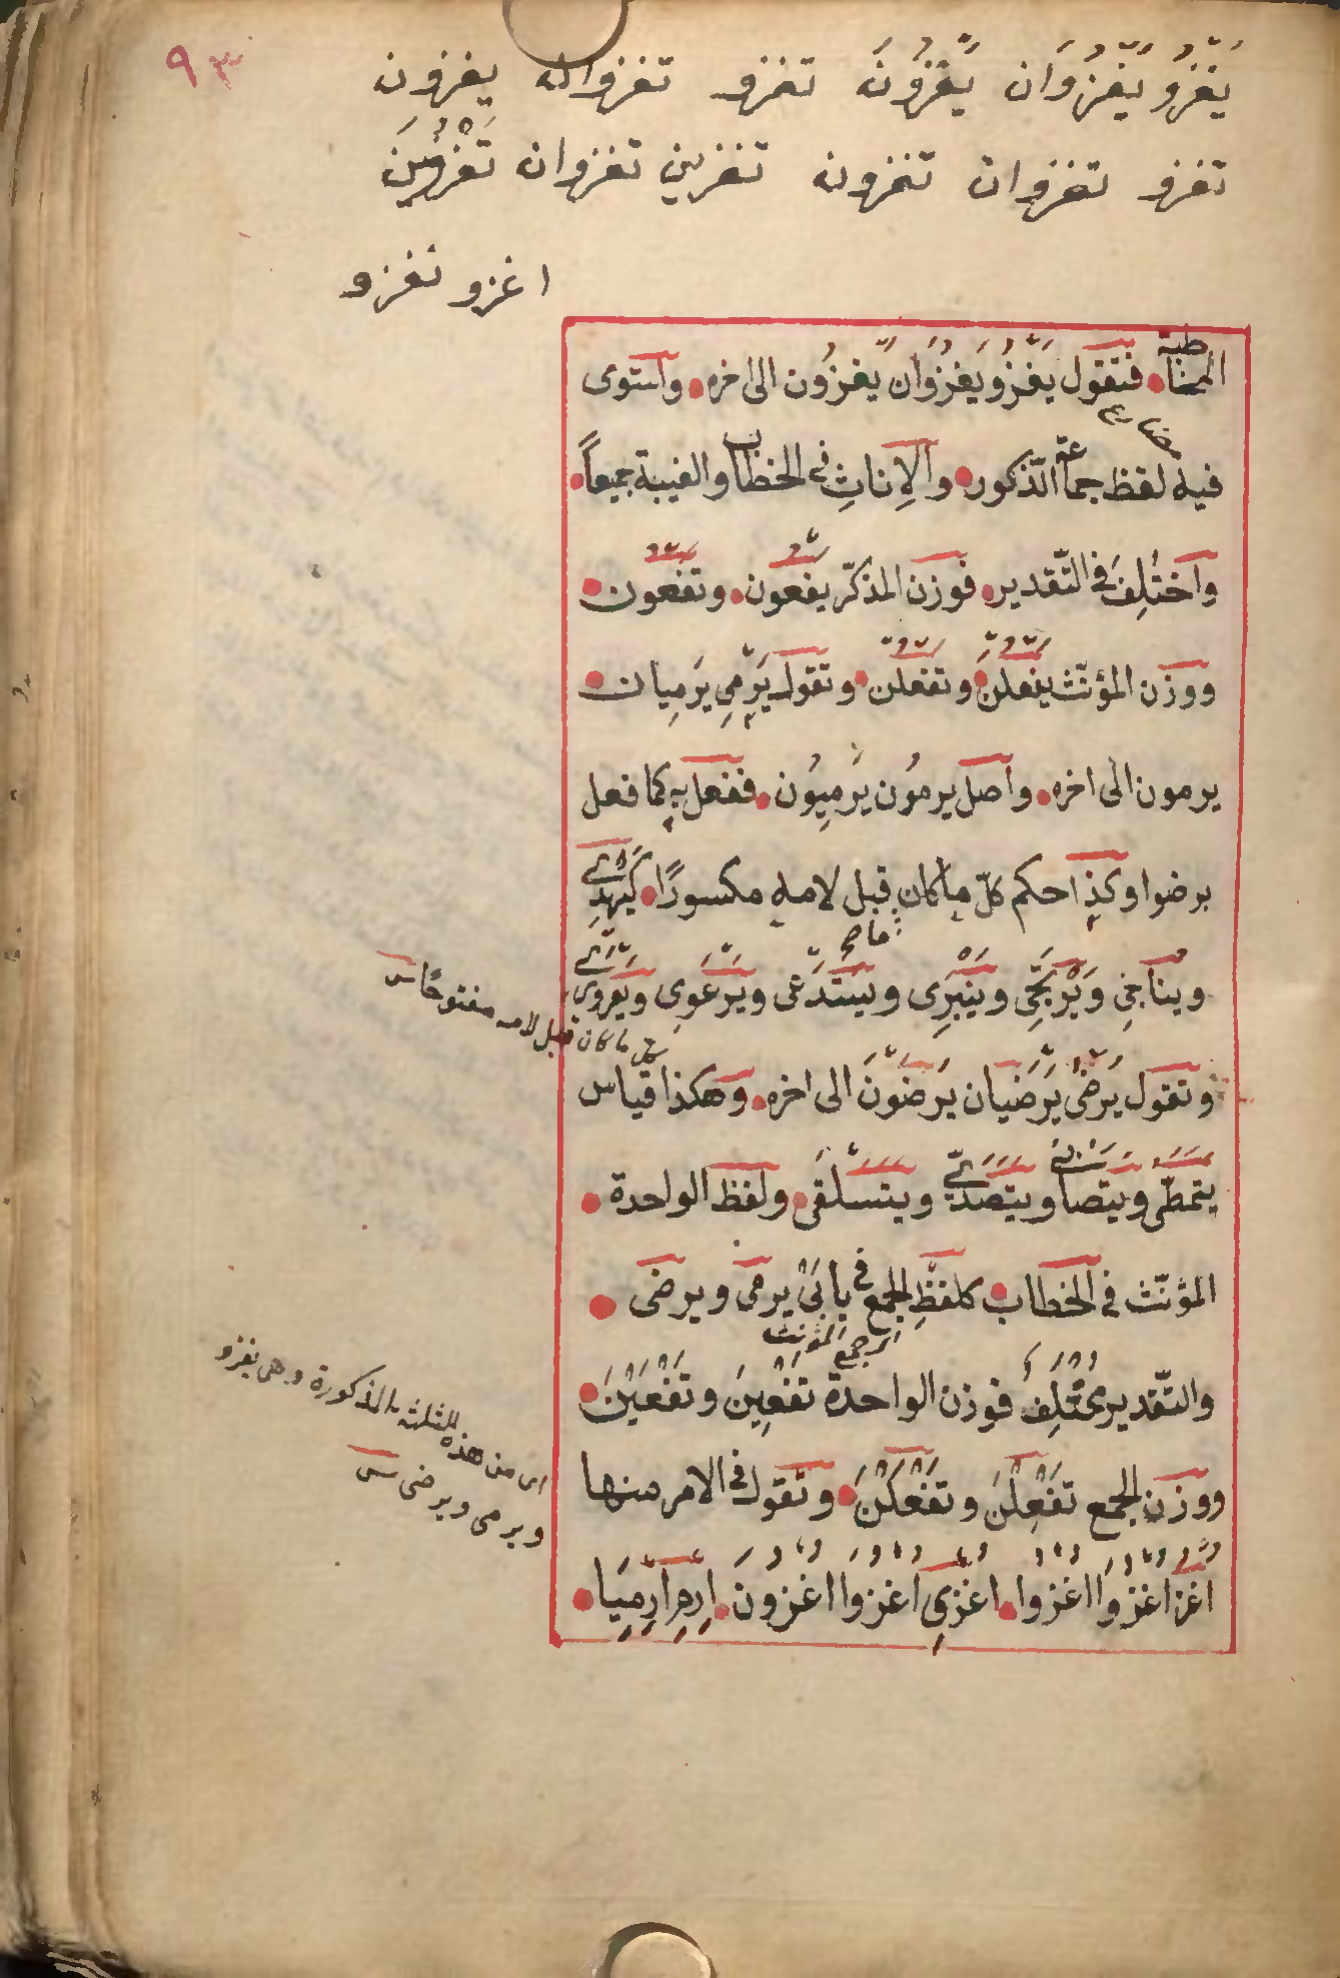 ٩٣
يَغْزُو يَغْزُوَانِ يَغْزُونَ تغزو تغزوان يغزون
تغزو تغزوان تغزون تغزين تغزوان تَغْزُونَ
اغزو نغزو
المخاطبة فتقول يَغْزُو يَغْزُوَانِ يَغْزُون الى اخره واستوى
فيه لفظ جماعة الذّكور والإناثِ في الخطاب والغيبة جميعاً
واختُلِفَ في التّقدير فوزن المذكّر يفعون وتفعون
ووزن المؤنّث يفعلن وتفعلن وتقول يَرْمِي يَرْمِيان
يرمون الى اخره واصل يرمُون يَرْمِيُون ففعل به كما فعل
برضوا وكذا حكم كلّ ما كان قبل لامه مكسورًا كَيَهْدِي
ويناجِي وَيَرْتَجِي وينْبَرِى ويَسْتَدْعى ويَرْعَوِى ويَعْرَوْرِي
وتقول يَرْضَى يَرْضَيَان يَرْضَوْنَ الى اخره وهكذا قياس
كل ما كان قبل لامه مفتوحًا
يتمطّى ويتصابى ويتصدّى ويتسلقى ولفظ الواحدة
المؤنّث في الخطاب كلفظِ الجمع في بابَىْ يرمى ويرضى
اى جمع المؤنث
والتّقدير مُخْتَلِفٌ فوزن الواحدة تَفْعِينَ وتَفْعَيْنَ
ووزن الجمع تَفْعِلْنَ وتَفْعَلْنَ وتقول في الامر منها
اى من هذه الثلثة المذكورة وهى يغزو
ويرمى ويرضى
اغز اغزُوَا اغزوا اغْزِي اغْزُوَا اغْزُونَ اِرْمِ اِرْمِيَا